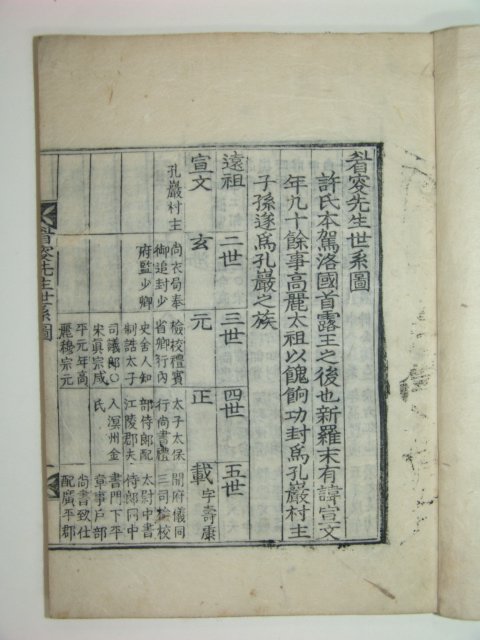 省窓先生世系圖
許氏本駕洛國首露王之後也新羅末有諱宣文
年九十餘事高麗太祖以餽餉功封爲孔巖村主
子孫遂爲孔巖之族
遠祖 二世 三世 四世 五世
宣文 玄 元 正 載字壽康
孔巖村主
尚衣局奉
御追封少
府監少卿
檢校禮賓
省卿行內
史舍人知
制誥太子
司議郎○
宋眞宗咸
平元年高
麗穆宗元
太子太保
行尚書禮
部侍郎配
江陵郡夫
人溟州金
氏
開府儀同
三司檢校
太尉中書
侍郎同中
書門下平
章事戶部
尚書致仕
配廣平郡
先生世系圖